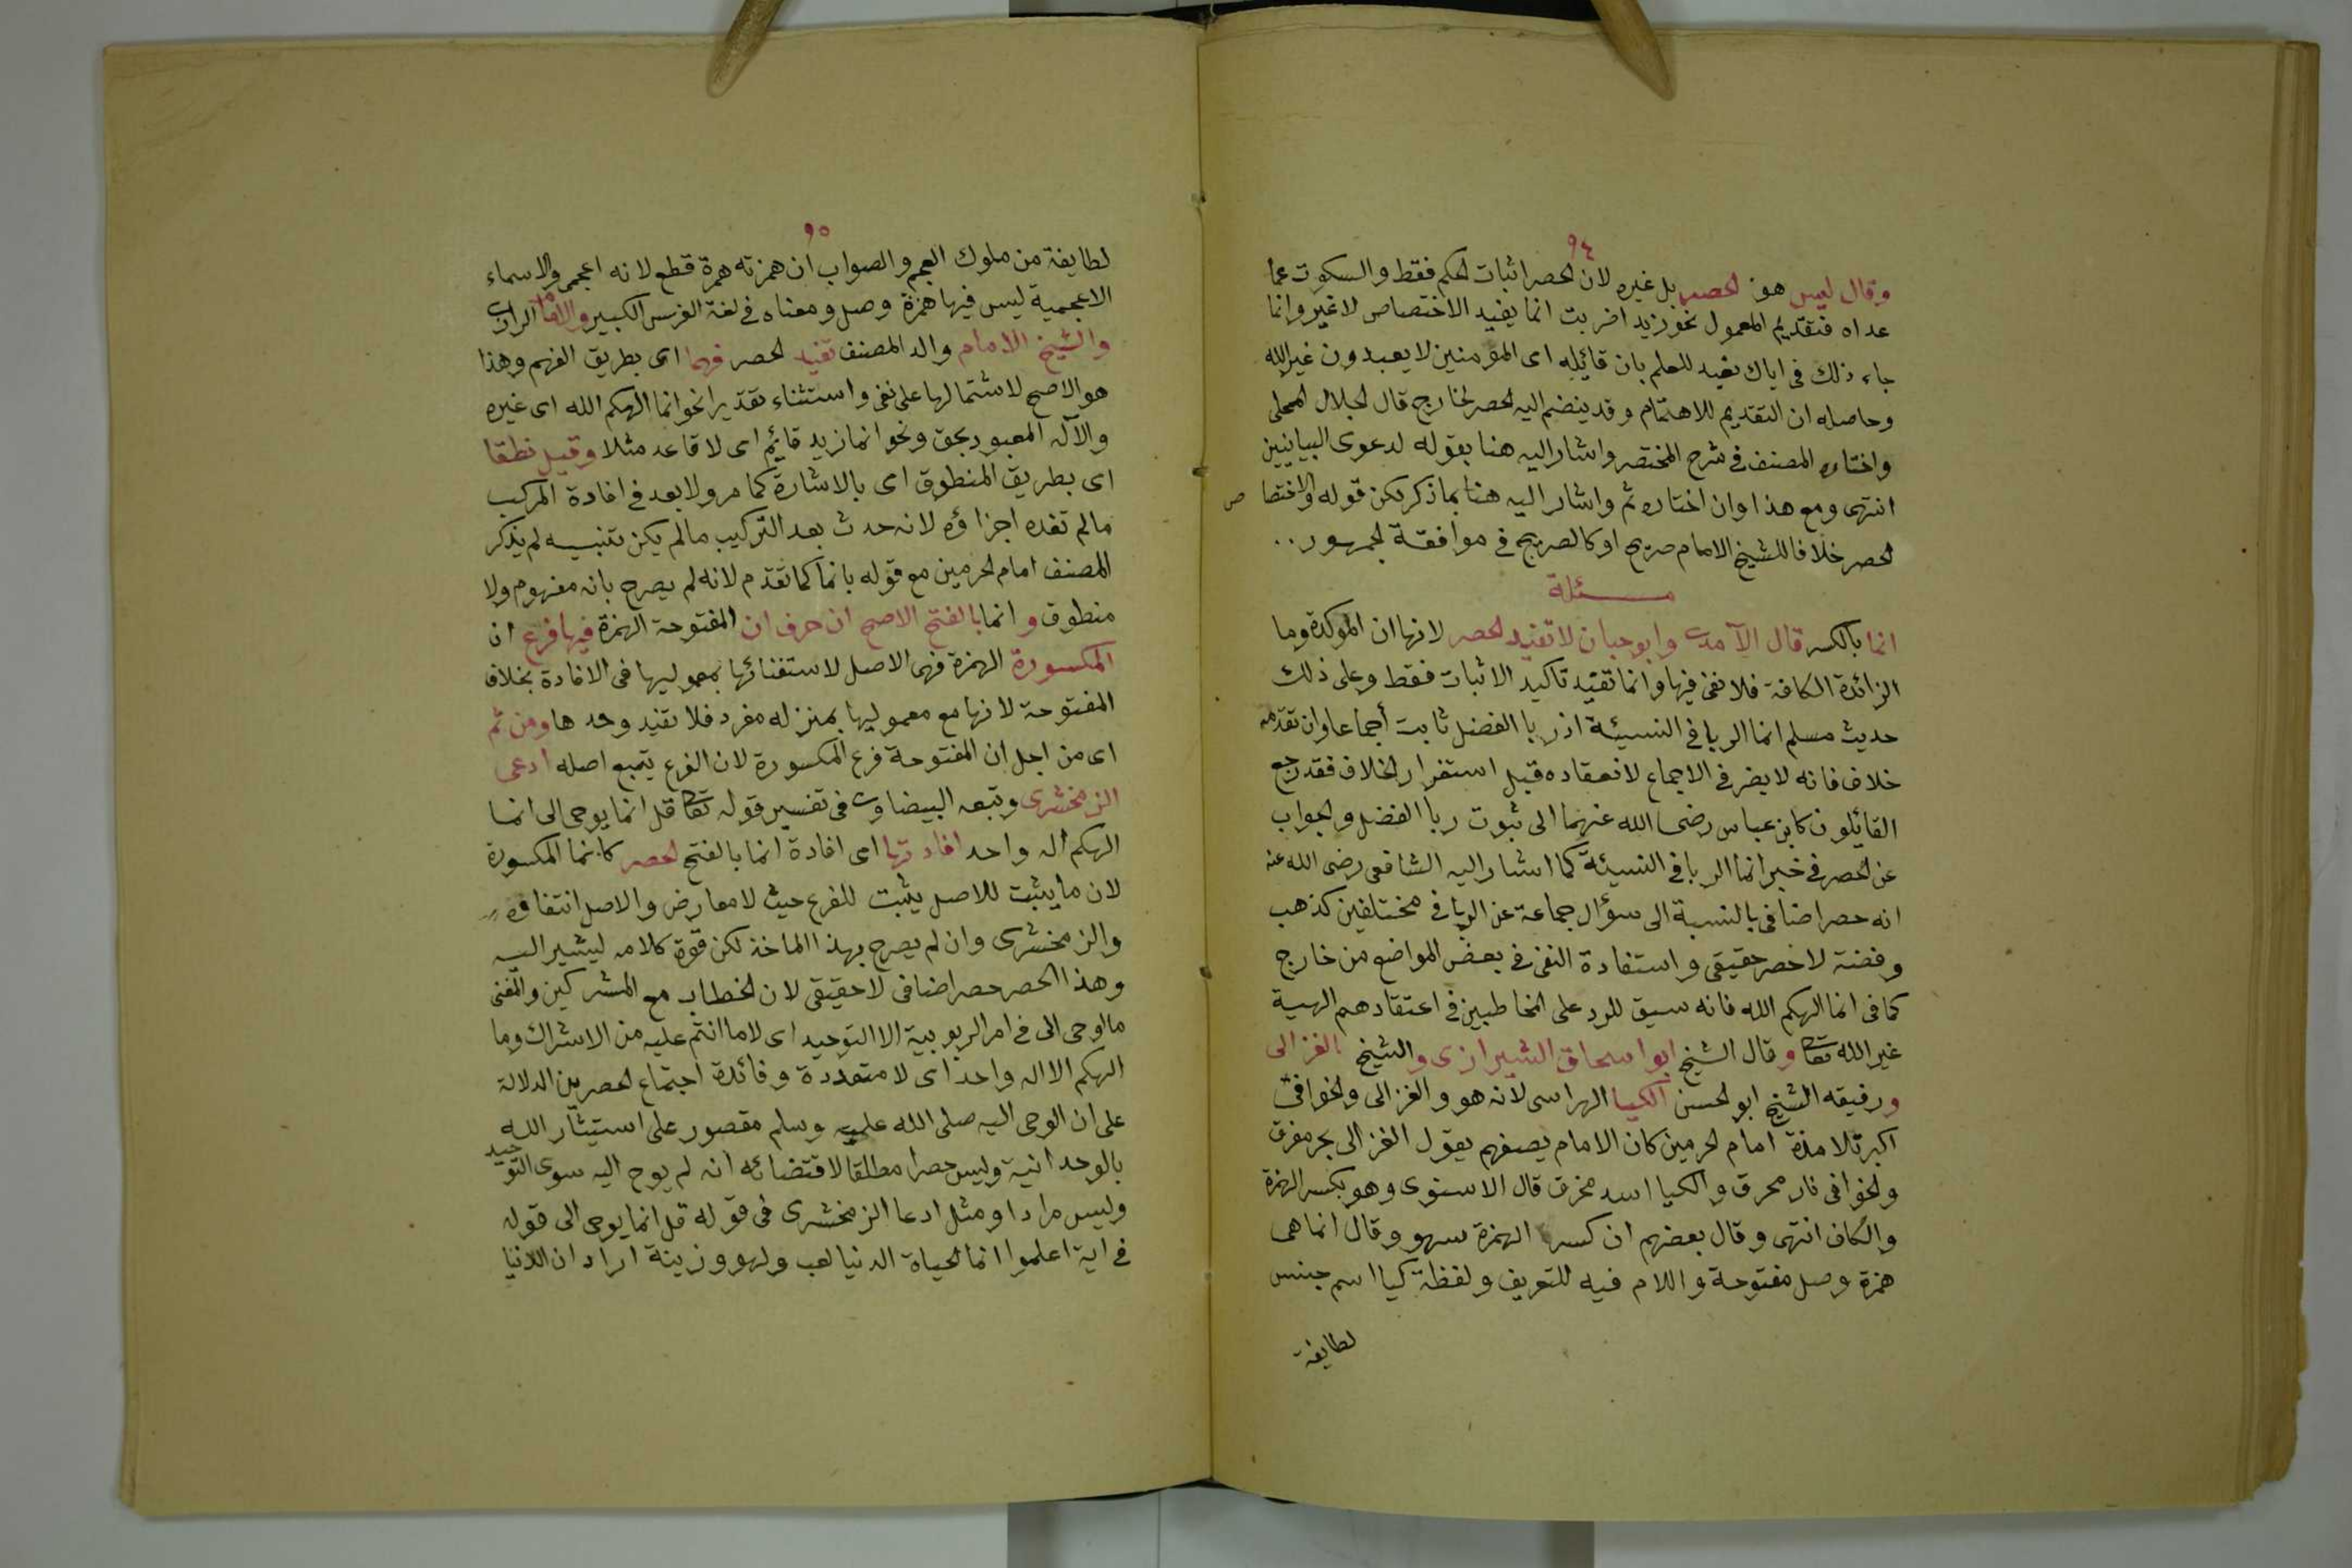 ٩٤
وقال ليس هو الحصر بل غيره لان الحصر اثبات الحكم فقط والسكوت عما
عداه فتقديم المعمول نحو زيدا ضربت انما يفيد الاختصاص لا غير وانما
جاء ذلك في اياك نعبد للعلم بان قائيله اى المؤمنين لا يعبدون غير الله
وحاصله ان التقديم للاهتمام وقد ينضم اليه الحصر لخارج قال الجلال المحلى
واختاره المصنف في شرح المختصر واشار اليه هنا بقوله لدعوى البيانيين
انتهى ومع هذا وان اختاره ثم واشار اليه هنا بما ذكر لكن قوله والاختصا ص
الحصر خلافا للشيخ الامام صريح او كالصريح في موافقة الجمهور ..
مسئلة
انما بالكسر قال الآمدى وابوحيان لا تفيد الحصر لانها ان المؤكدة وما
الزائدة الكافة فلا نفى فيها وانما تفيد تاكيد الاثبات فقط وعلى ذلك
حديث مسلم انما الربا في النسيئة اذ ربا الفضل ثابت أجماعا وان تقدمه
خلاف فانه لا يضر في الاجماع لانعقاده قبل استقرار الخلاف فقد رجع
القائلون كابن عباس رضى الله عنهما الى ثبوت ربا الفضل والجواب
عن الحصر في خبر انما الربا في النسيئة كما اشار اليه الشافعى رضى الله عنه
انه حصر اضافى بالنسبة الى سؤال جماعة عن الربا في مختلفين كذهب
وفضة لا حصر حقيقى واستفادة النفى في بعض المواضع من خارج
كما في انما الهكم الله فانه سيق للرد على المخاطبين في اعتقادهم الهية
غير الله تعالى وقال الشيخ ابو اسحاق الشيرازى والشيخ الغزالى
ورفيقه الشيخ ابو الحسن الكيا الهراسى لانه هو والغزالى والخوافى
اكبر تلامذة امام الحرمين كان الامام يصفهم يقول الغزالى بحر مغرق
والخوافى نار محرق والكيا اسد مخرق قال الاسنوى وهو بكسر الهمزة
والكاف انتهى وقال بعضهم ان كسر الهمزة سهو وقال انما هى
همزة وصل مفتوحة واللام فيه للتعريف ولفظة كيا اسم جنس
لطايفة
٩٥
لطايفة من ملوك العجم والصواب ان همزته همزة قطع لانه اعجمى والاسماء
الاعجمية ليس فيها همزة وصل ومعناه في لغة الفرس الكبير والامام الرازى
والشيخ الامام والد المصنف تفيد الحصر فهما اى بطريق الفهم وهذا
هو الاصح لاشتمالها على نفى واستثناء تقديرا نحو انما الهكم الله اى غيره
والآله المعبود بحق ونحو انما زيد قايم اى لا قاعد مثلا وقيل نطقا
اى بطريق المنطوق اى بالاشارة كما مر ولا بعد في افادة المركب
مالم تفده اجزاؤه لانه حدث بعد التركيب مالم يكن تنبيه لم يذكر
المصنف امام الحرمين مع قوله بانما كما تقدم لانه لم يصرح بانه مفهوم ولا
منطوق و انما بالفتح الاصح ان حرف ان المفتوحة الهمزة فيها فرع ان
المكسورة الهمزة فهى الاصل لاستغنائها بمعموليها في الافادة بخلاف
المفتوحة لانها مع معموليها بمنزله مفرد فلا تفيد وحدها ومن ثم
اى من اجل ان المفتوحة فرع المكسورة لان الفرع يتبع اصله ادعى
الزمخشرى وتبعه البيضاوى في تفسير قوله تعالى قل انما يوحى الى انما
الهكم اله واحد افادتها اى افادة انما بالفتح الحصر كانما المكسورة
لان ما يثبت للاصل يثبت للفرع حيث لا معارض والاصل انتفاؤه
والزمخشرى وان لم يصرح بهذا الماخذ لكن قوة كلامه ليشير اليه
وهذا الحصر حصر اضافى لا حقيقى لان الخطاب مع المشركين والمعنى
ما اوحى الى في امر الربوبية الا التوحيد اى لا ما انتم عليه من الاشراك وما
الهكم الا اله واحد اى لا متعددة وفائدة اجتماع الحصرين الدلالة
على ان الوحى اليه صلى الله عليه وسلم مقصور على استيثار الله
بالوحدانية وليس حصرا مطلقا لاقتضائه انه لم يوح اليه سوى التوحيد
وليس مرادا ومثل ادعا الزمخشرى في قوله قل انما يوحى الى قوله
في اية اعلموا انما الحياة الدنيا لعب ولهو وزينة اراد ان الدنيا